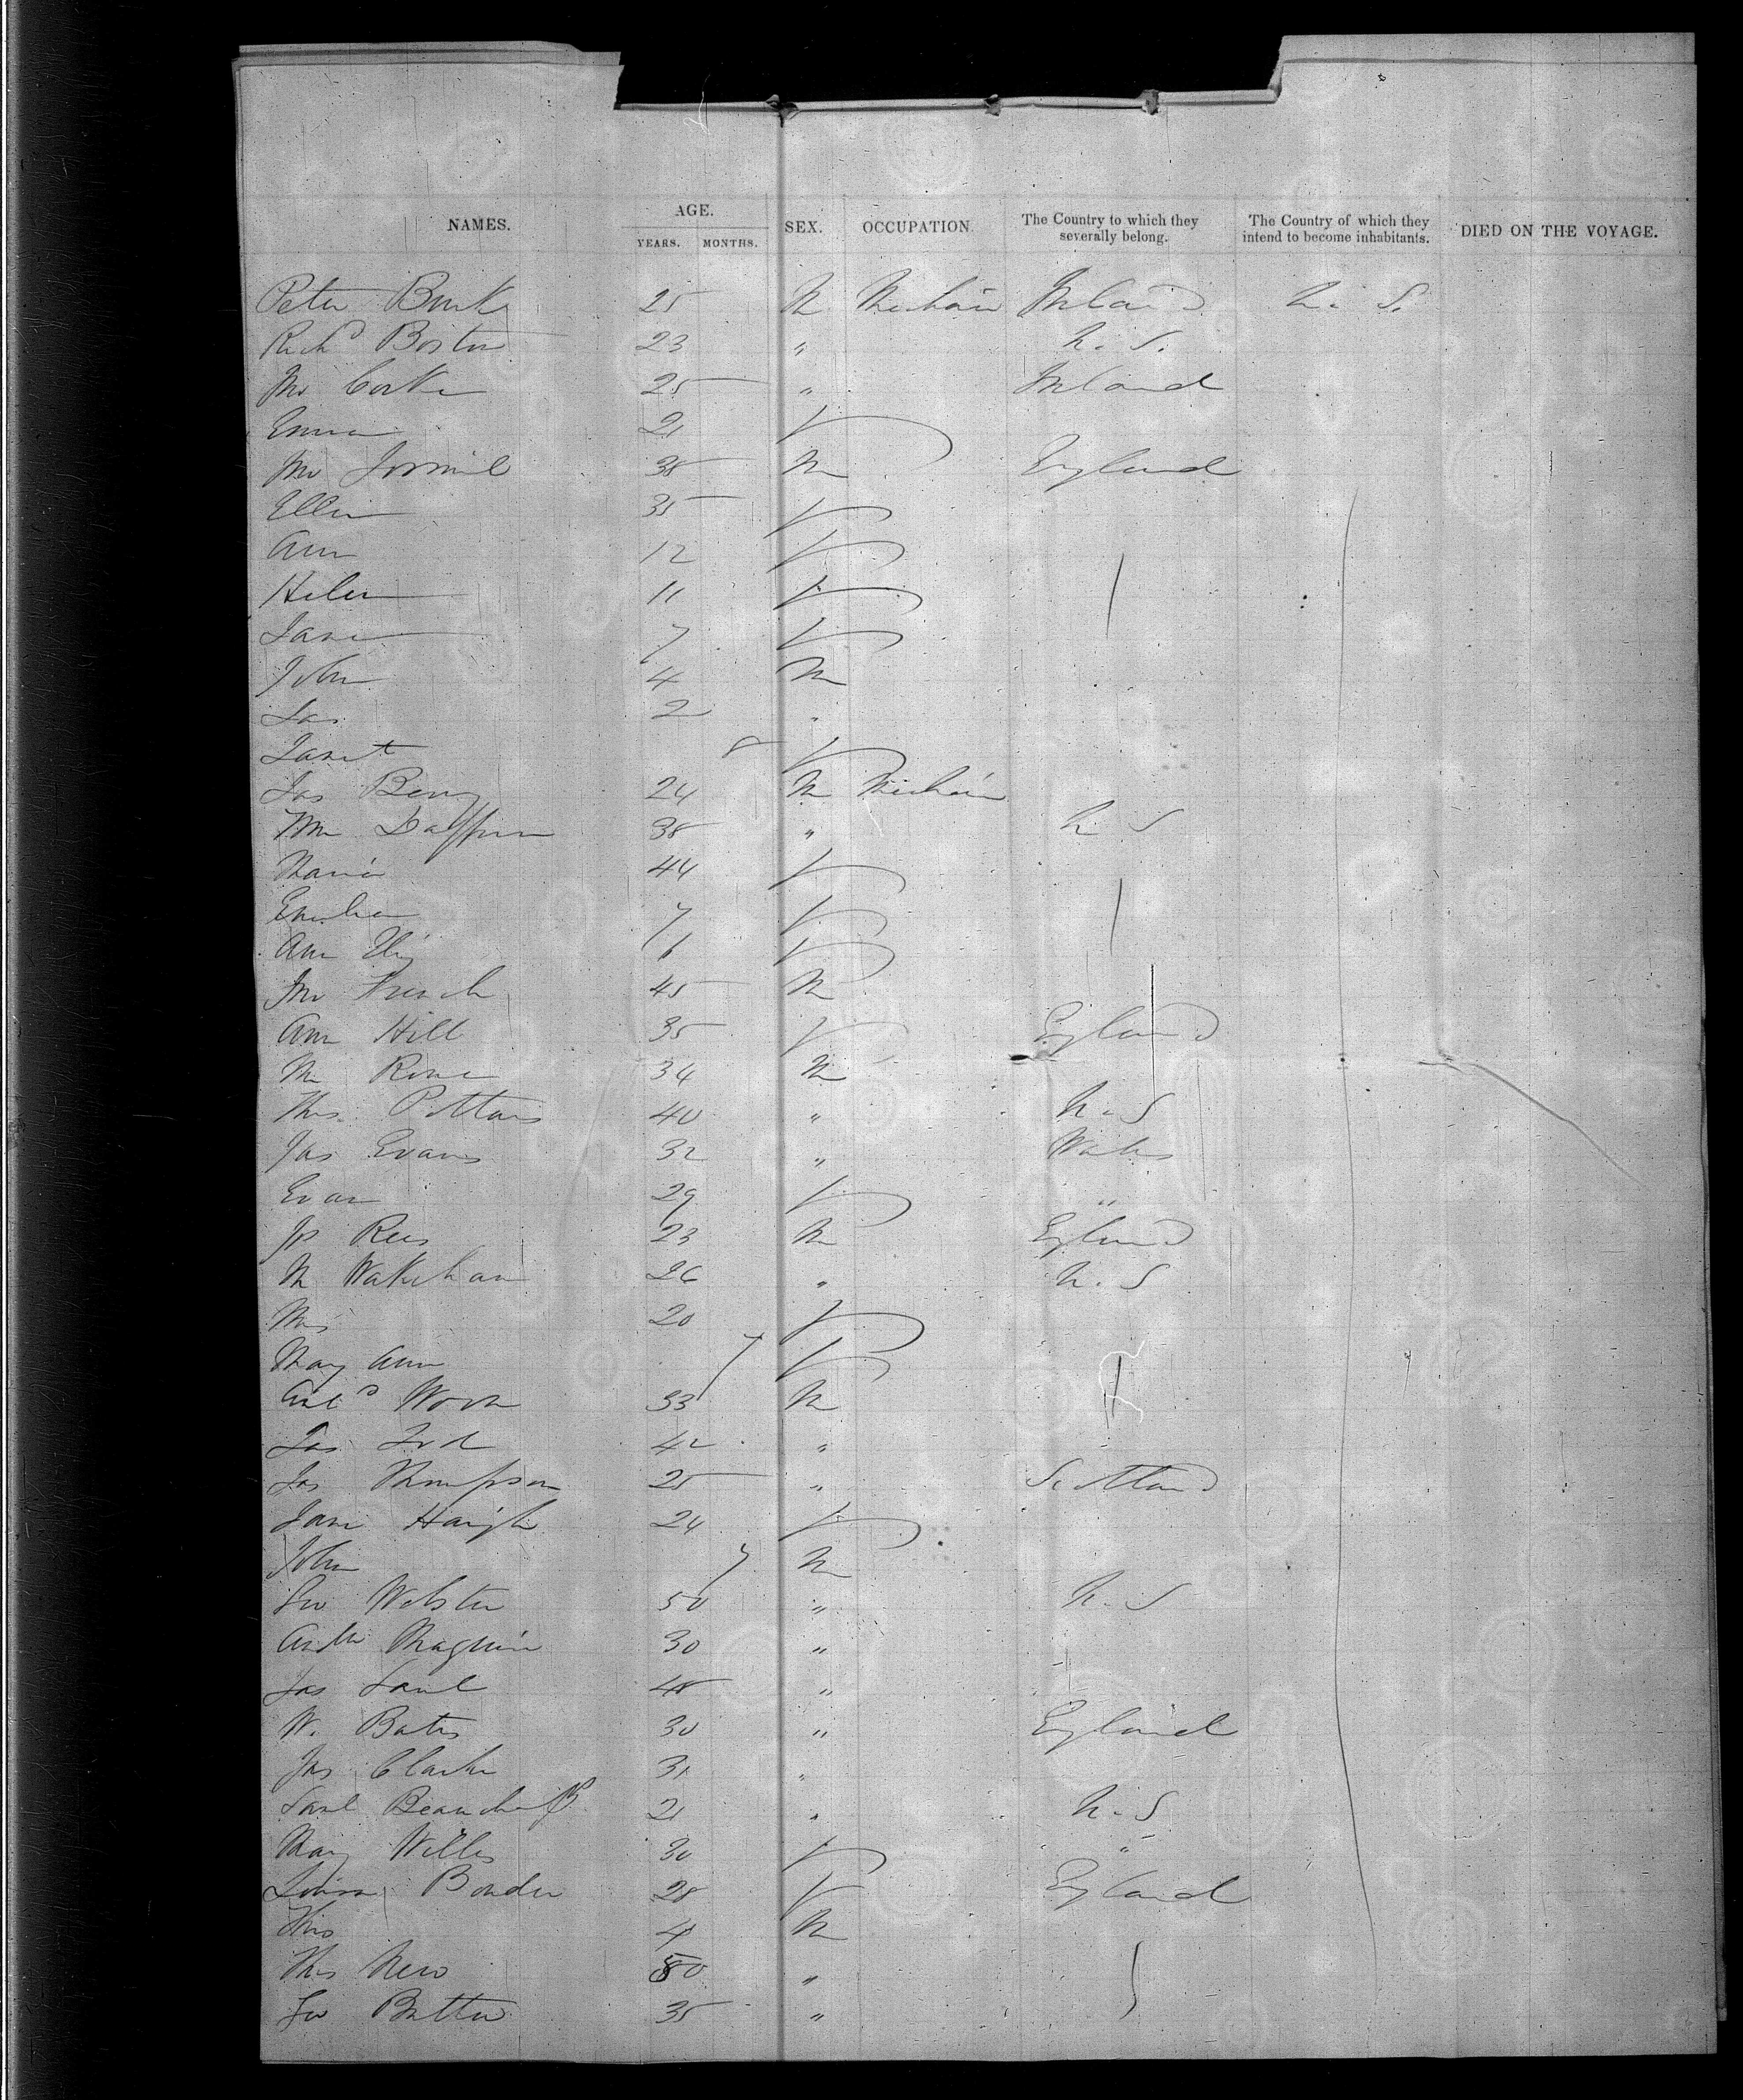 NAMES. AGE. SEX. OCCUPATION. The Country to which they severally belong. The Country of which they intend to become inhabitants. DIED ON THE VOYAGE.
YEARS. MONTHS.
Peter Burke 25 M Mechanic Ireland U. S.
Richd Boston 23 " U. S.
Jno 25 " Ireland
Emma 21 F
Jno 38 M England
Ellen 35 F
Ann 12 F
Helen 11 F
Jane 7 F
John 4 M
Jas 2 "
Janet 8 F
Jas Berry 24 M Mechanic
Wm 38 " U S
Maria 44 F
Emelia 7 F
Ann Eliz 6 F
Jno French 45 M
Ann Hill 35 F England
M Rowe 34 M
Thos 40 " U. S
Jas Evans 32 " Wales
Evan 29 F "
Jos Rees 23 M England
M Wakeham 26 " U. S
Mrs 20 F
Mary Ann 7 F
33 M
Jas 42 "
Jas Thompson 25 " Scotland
Jane Haigh 24 F
John 7 M
Geo Webster 50 " U. S
Arth Maguire 30 "
Jas 48 "
W. Bates 30 " England
Jas Clarke 31 "
Saml 21 " U. S
Mary Willis 30 F "
Louisa 28 F England
Thos 4 M
Thos New 50 "
Geo 35 "